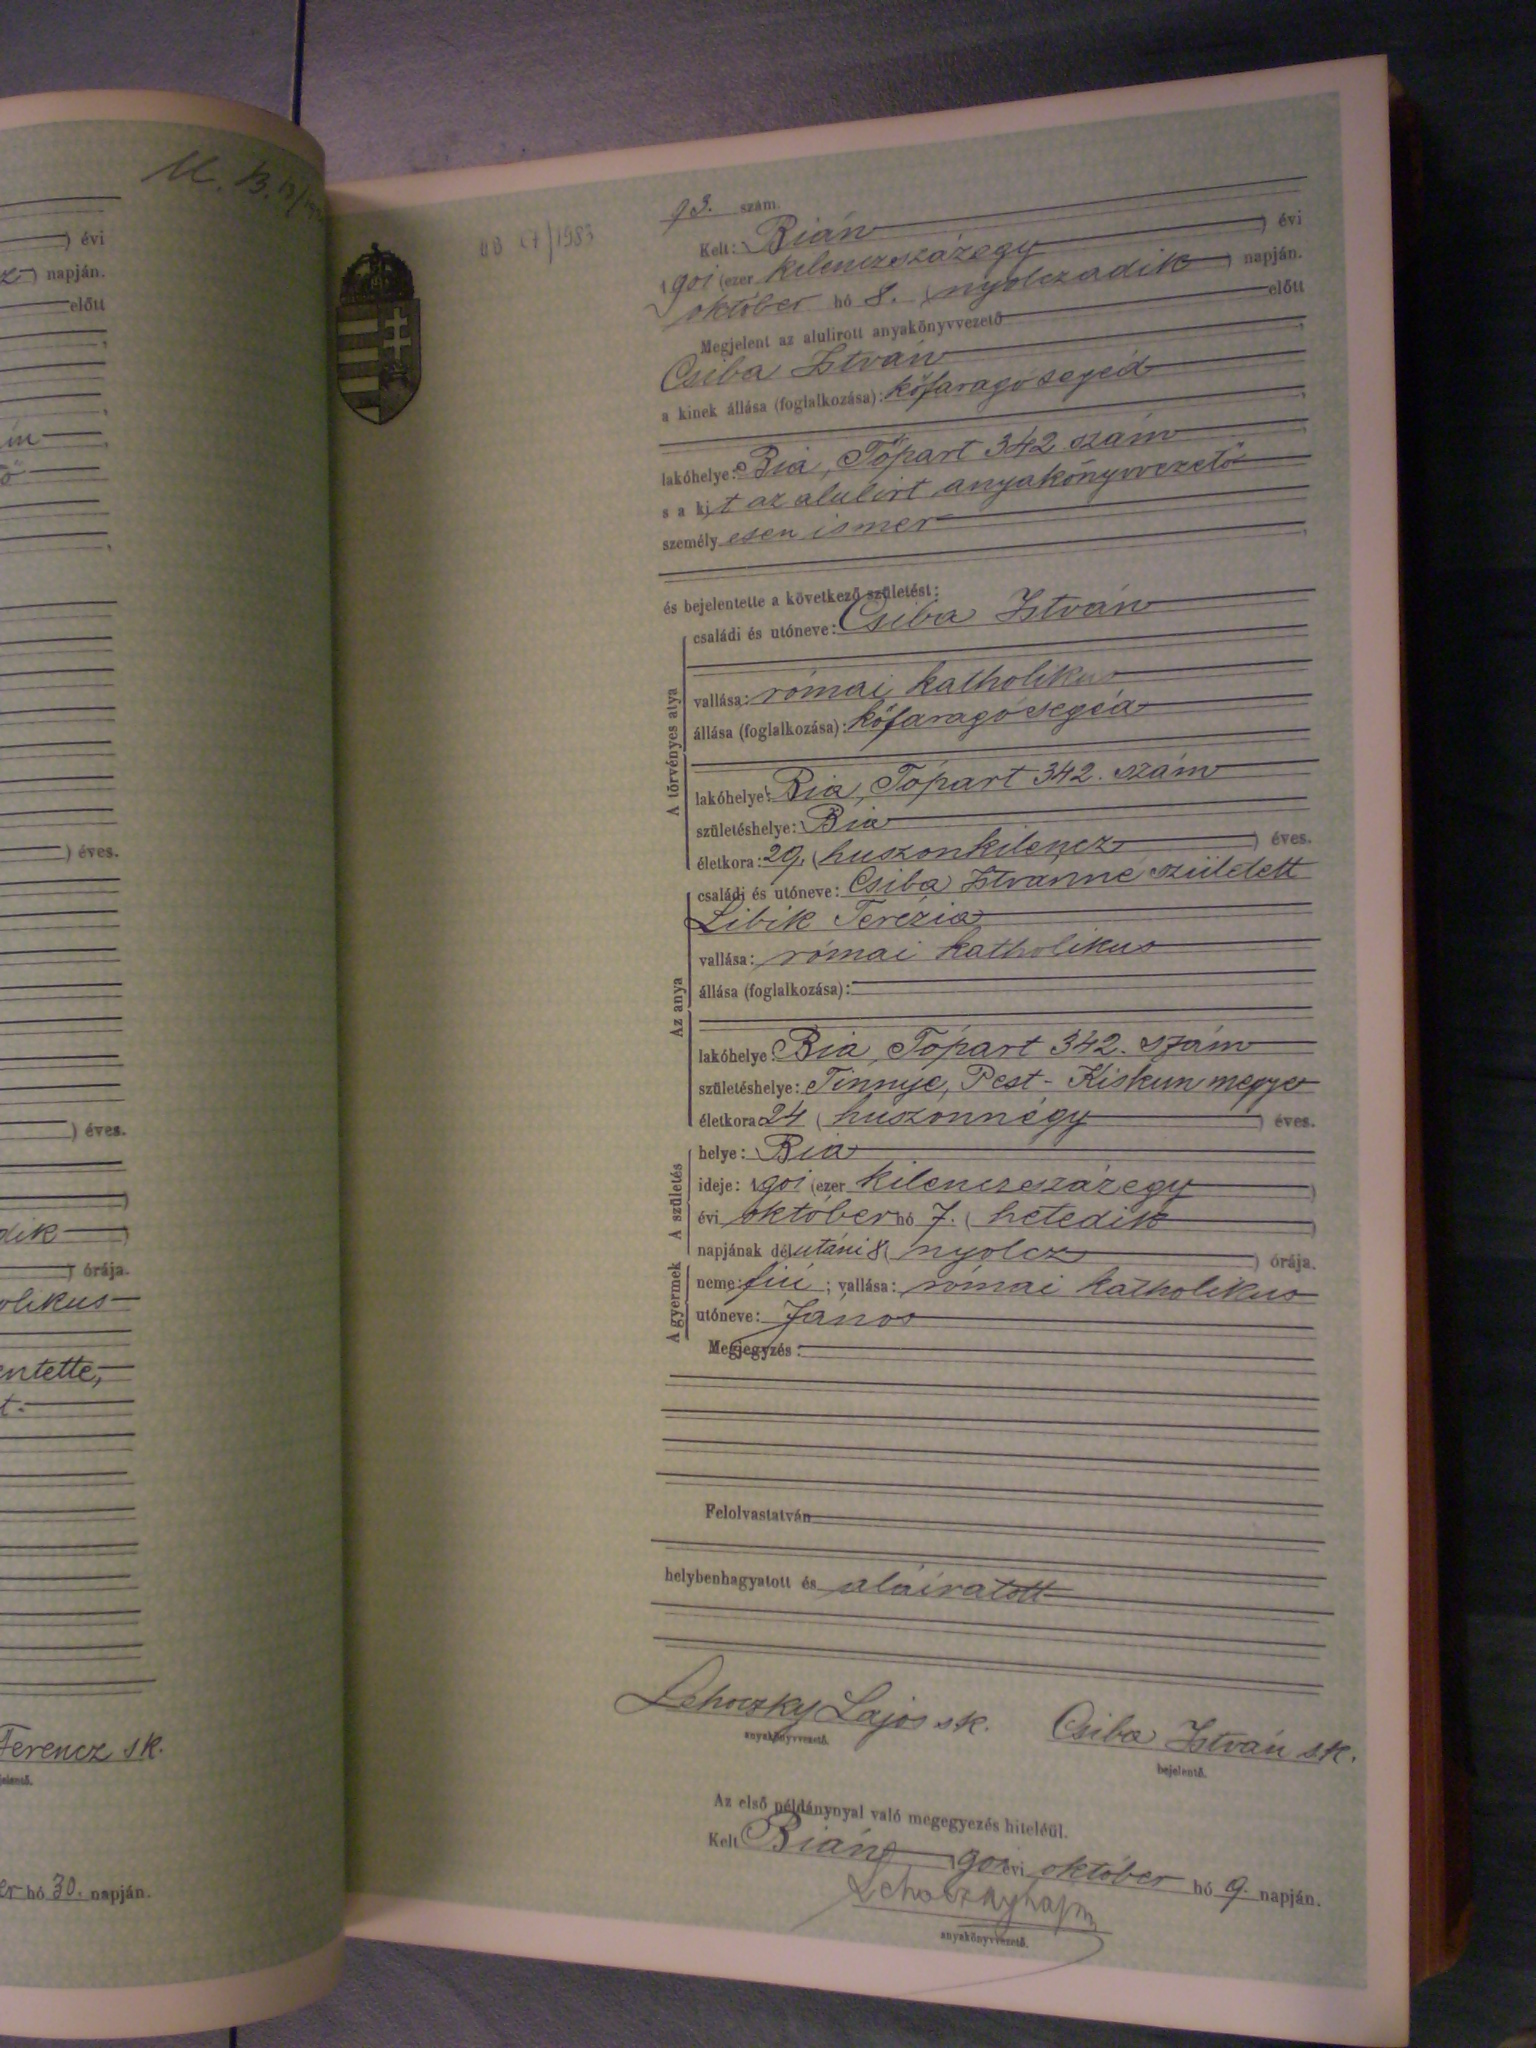 M. B. 13/
) évi
napján.
előtt
) éves.
) éves.
dik
) órája.
olikus
entette,
t.
Ferencz sk.
er hó 30. napján.
/1983
93. szám.
Kelt: Bián
1901 (ezer kilenczszázegy ) évi
október hó 8. (nyolczadik ) napján.
Megjelent az alulirott anyakönyvvezető előtt
Csiba István
a kinek állása (foglalkozása): kőfaragó segéd
lakóhelye: Bia, Tópart 342 szám
s a kit az alulirt anyakönyvvezető
személyesen ismer
és bejelentette a következő születést:
A törvényes atya
családi és utóneve: Csiba István
vallása: római katholikus
állása (foglalkozása): kőfaragó segéd
lakóhelye: Bia, Tópart 342. szám
születéshelye: Bia
életkora: 29, (huszonkilencz ) éves.
Az anya
családi és utóneve: Csiba Istvánné született
Libik Terézia
vallása: római katholikus
állása (foglalkozása):
lakóhelye: Bia, Tópart 342. szám
születéshelye: Tinnye, Pest-Kiskun megye
életkora 24 (huszonnégy ) éves.
A születés
helye: Bia
ideje: 1901 (ezer kilenczszázegy )
évi október hó 7. (hetedik )
napjának délutáni 8 (nyolcz ) órája.
A gyermek
neme: fiú ; vallása: római katholikus
utóneve: János
Megjegyzés:
Felolvastatván
helybenhagyatott és aláiratott
Lehoczky Lajos sk. Csiba István sk.
anyakönyvvezető. bejelentő.
Az első példánynyal való megegyezés hiteléül.
Kelt Bián, 1901 évi október hó 9. napján.
Lehoczky Lajos
anyakönyvvezető.